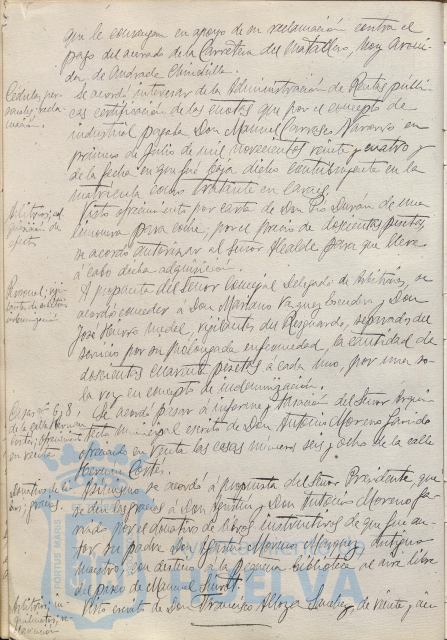 que le convengan en apoyo de su reclamación contra el
pago del acerado de la Carretera del Matadero, hoy Aveni-
da de Andrade Chinchilla.
Cédulas per-
sonales, recla-
mación.
Se acordó interesar de la Administración de Rentas públi-
cas certificación de las cuotas que por el concepto de
industrial pagaba Don Manuel Carrasco Navarro en
primero de Julio de mil novecientos veinte y cuatro y
de la fecha en que fué baja dicho contribuyente en la
matrícula como tratante en carnes.
Arbitrios, ad-
quisición de
efectos
Visto ofrecimiento por carta de Don Pío Durán de una
para coche, por el precio de doscientas pesetas,
se acordó autorizar al Señor Alcalde para que lleve
a cabo dicha adquisición.
Personal, vigi-
lante de arbitrios
indemnización
A propuesta del Señor Concejal Delegado de Arbitrios, se
acordó conceder a Don Mariano Vázquez Escudero y Don
José Hierro Medel, vigilantes del Resguardo, separados del
servicio por su prolongada enfermedad, la cantidad de
doscientas cuarenta pesetas a cada uno, por una so-
la vez en concepto de indemnización.
Casas nº 6 y 8
de la calle Hernán
Cortés; ofrecimiento
en venta
Se acordó pasar a informe y tasación del Señor Arqui-
tecto Municipal escrito de Don Antonio Moreno Garrido
ofreciendo en venta las casas números seis y ocho de la calle
Hernán Cortés.
Donativo de li-
bros; gracias.
Asimismo se acordó a propuesta del Señor Presidente que
se den las gracias a Don Agustín y Don Antonio Moreno Ga-
rrido por el donativo de libros instructivos de que fué au-
tor su padre Don Agustín Moreno Márquez, antiguo
maestro, con destino a la pequeña biblioteca al aire libre
del paseo de Manuel Siurot.
Arbitrios; in-
quilinato, re-
clamación
Visto escrito de Don Francisco Sánchez, de veinte y
PORTUS MARIS
HUELVA